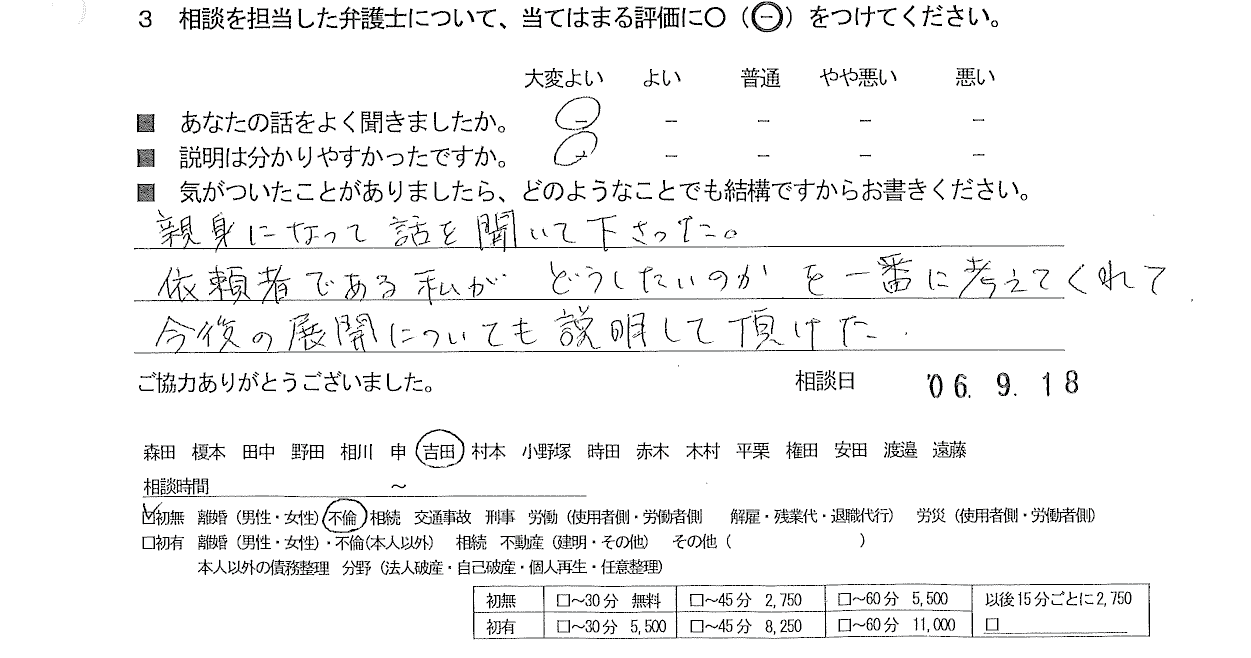 3 相談を担当した弁護士について、当てはまる評価に〇（㊀）をつけてください。
大変よい よい 普通 やや悪い 悪い
■ あなたの話をよく聞きましたか。 － － － － －
■ 説明は分かりやすかったですか。 － － － － －
■ 気がついたことがありましたら、どのようなことでも結構ですからお書きください。
親身になって話を聞いて下さった。
依頼者である私が どうしたいのか を一番に考えてくれて
今後の展開についても説明して頂けた.
ご協力ありがとうございました。 相談日 '06. 9. 18
森田 榎本 田中 野田 相川 申 吉田 村本 小野塚 時田 赤木 木村 平栗 権田 安田 渡邉 遠藤
相談時間 ～
☑初無 離婚（男性・女性）不倫 相続 交通事故 刑事 労働（使用者側・労働者側 解雇・残業代・退職代行） 労災（使用者側・労働者側）
□初有 離婚（男性・女性）・不倫(本人以外） 相続 不動産（建明・その他） その他（ ）
本人以外の債務整理 分野（法人破産・自己破産・個人再生・任意整理）
初無 □～30分 無料 □～45分 2,750 □～60分 5,500 以後15分ごとに2,750
初有 □～30分 5,500 □～45分 8,250 □～60分 11,000 □